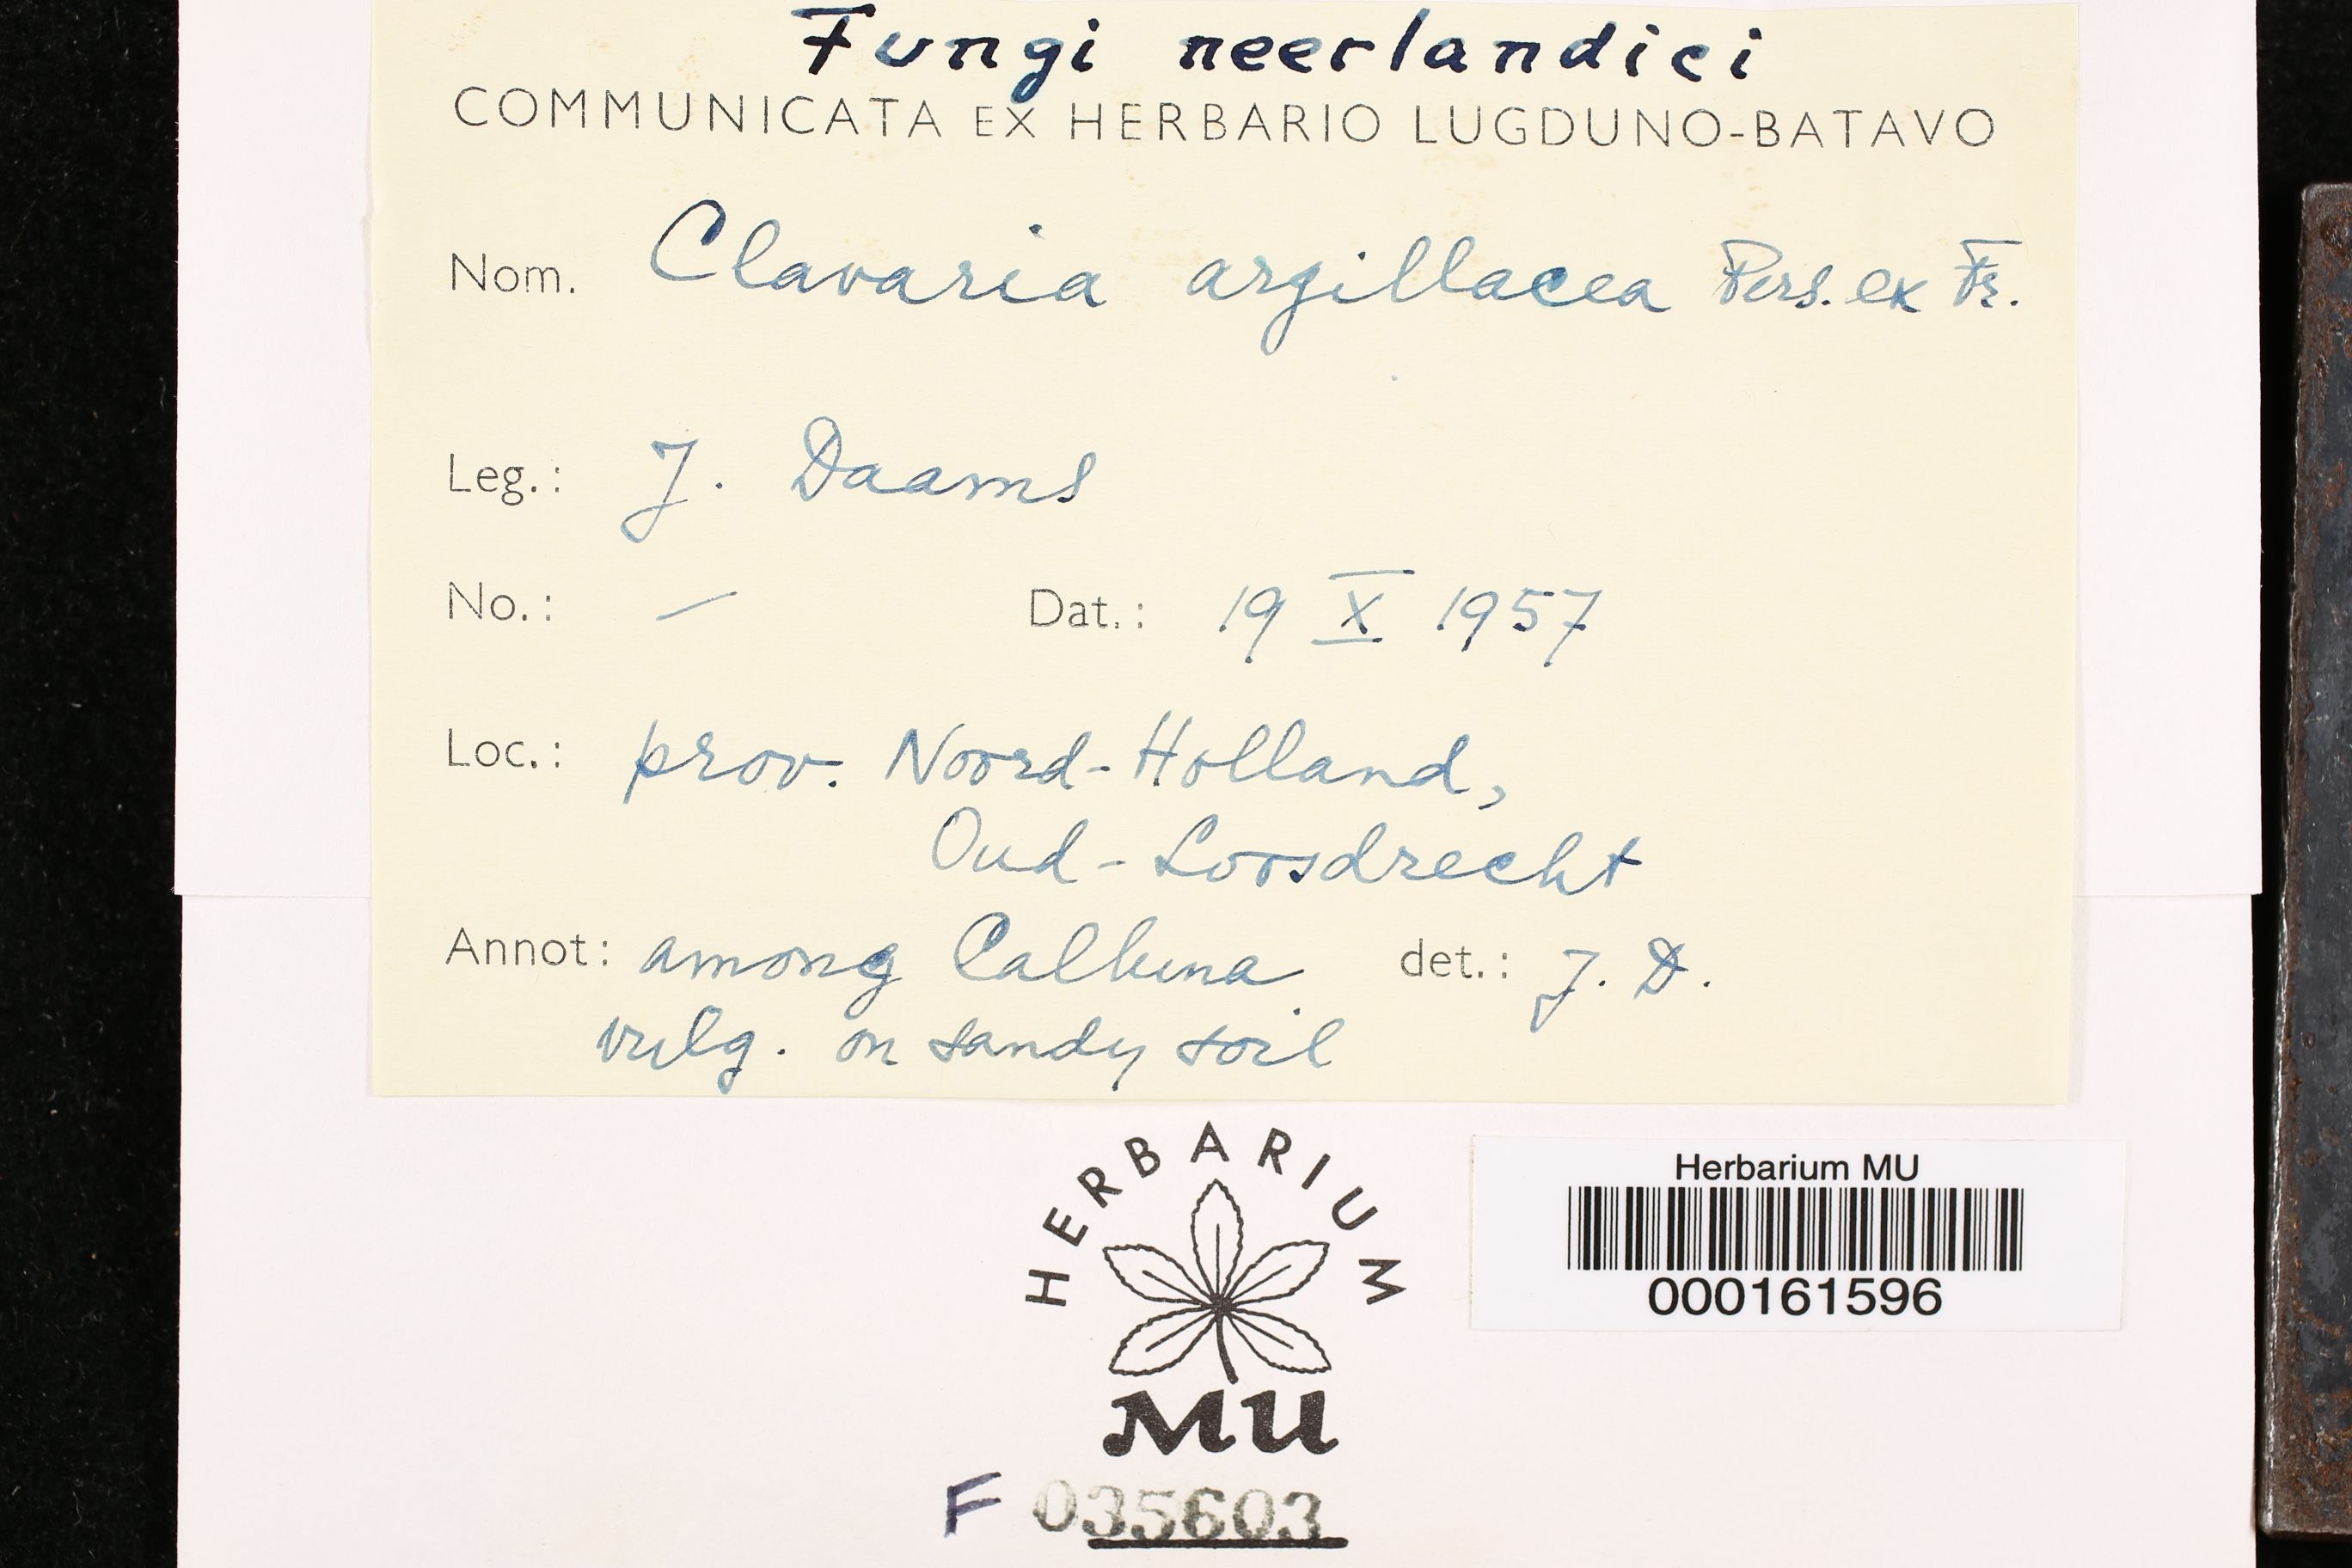 Fungi neerlandici
COMMUNICATA EX HERBARIO LUGDUNO-BATAVO
Nom. Clavaria argillacea Pers. ex Fr.
Leg.: J. Daams
No.: — Dat.: 19 X 1957
Loc.: prov. Noord-Holland,
Oud-Loosdrecht
Annot: among Calluna det.: J. D.
vulg. on sandy soil
HERBARIUM
MU
Herbarium MU
000161596
F 035603